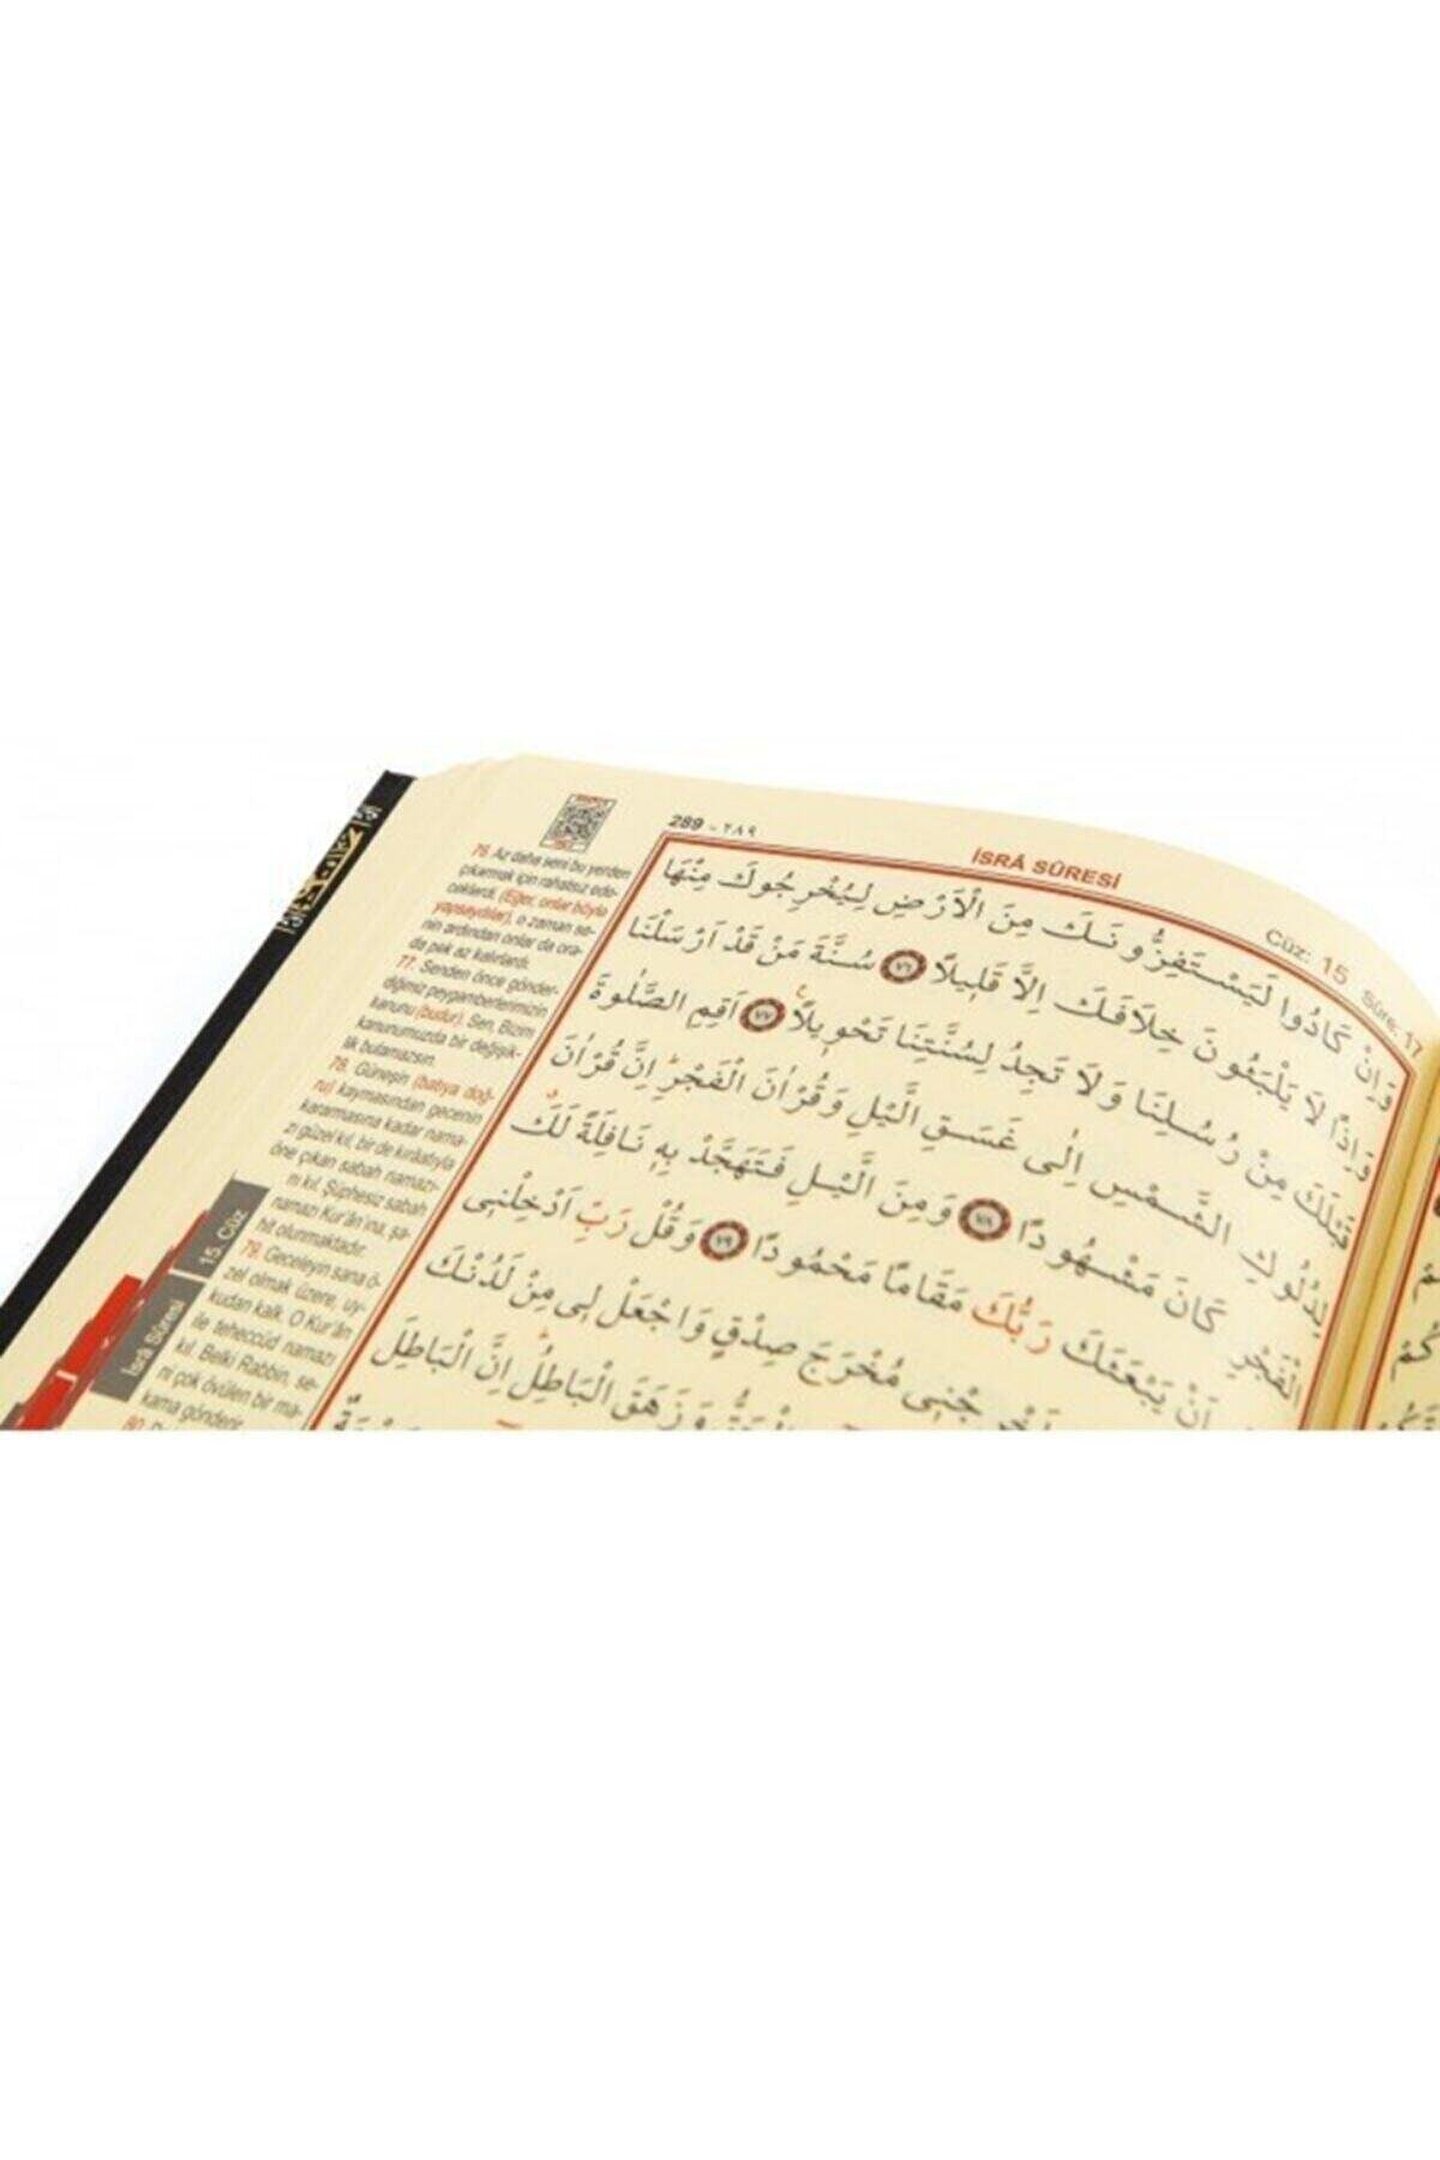 289 - ٢٨٩
İSRÂ SÛRESİ
Cüz: 15 Sûre: 17
وَاِنْ كَادُوا لَيَسْتَفِزُّونَكَ مِنَ الْاَرْضِ لِيُخْرِجُوكَ مِنْهَا
وَاِذًا لَا يَلْبَثُونَ خِلَافَكَ اِلَّا قَلٖيلًا ٧٦ سُنَّةَ مَنْ قَدْ اَرْسَلْنَا
قَبْلَكَ مِنْ رُسُلِنَا وَلَا تَجِدُ لِسُنَّتِنَا تَحْوٖيلًا ٧٧ اَقِمِ الصَّلٰوةَ
لِدُلُوكِ الشَّمْسِ اِلٰى غَسَقِ الَّيْلِ وَقُرْاٰنَ الْفَجْرِ اِنَّ قُرْاٰنَ
الْفَجْرِ كَانَ مَشْهُودًا ٧٨ وَمِنَ الَّيْلِ فَتَهَجَّدْ بِهٖ نَافِلَةً لَكَ
اَنْ يَبْعَثَكَ رَبُّكَ مَقَامًا مَحْمُودًا ٧٩ وَقُلْ رَبِّ اَدْخِلْنٖى
مُخْرَجَ صِدْقٍ وَاجْعَلْ لٖى مِنْ لَدُنْكَ
وَزَهَقَ الْبَاطِلُ اِنَّ الْبَاطِلَ
76. Az daha seni bu yerden
çıkarmak için rahatsız ede-
ceklerdi. (Eğer, onlar böyle
yapsaydılar), o zaman se-
nin ardından onlar da ora-
da pek az kalırlardı.
77. Senden önce gönder-
diğimiz peygamberlerimizin
kanunu (budur). Sen, Bizim
kanunumuzda bir değişik-
lik bulamazsın.
78. Güneşin (batıya doğ-
ru) kaymasından gecenin
kararmasına kadar nama-
zı güzel kıl, bir de kırâatıyla
öne çıkan sabah namazı-
nı kıl. Şüphesiz sabah
namazı Kur'ân'ına, şa-
hit olunmaktadır.
79. Geceleyin sana ö-
zel olmak üzere, uy-
kudan kalk. O Kur'ân
ile teheccüd namazı
kıl. Belki Rabbin, se-
ni çok övülen bir ma-
kama gönderir.
80.
15. Cüz
İsrâ Sûresi